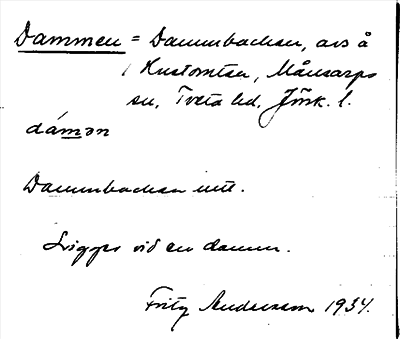 Dammen = Dammbacken, avs å
Hustomten, Månsarps
sn, Tveta hd, Jönk. l.
dámən
Dammbacken utt.
Ligger vid en damm.
Fritz Andersson 1934.